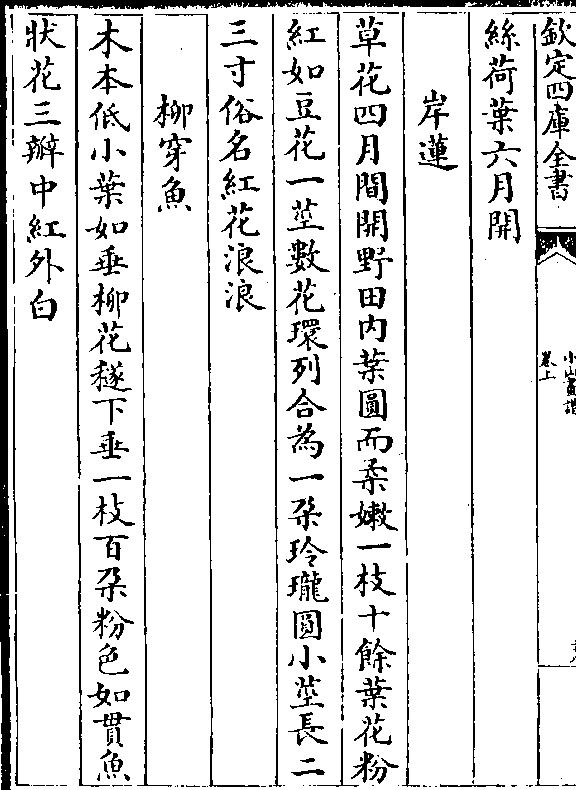 欽定四庫全書
小山畫譜
卷上
絲荷葉六月開
岸蓮
草花四月間開野田内葉圓而柔嫩一枝十餘葉花粉
紅如豆花一莖數花環列合為一朶玲瓏圓小莖長二
三寸俗名紅花浪浪
柳穿魚
木本低小葉如垂柳花穟下垂一枝百朶粉色如貫魚
狀花三瓣中紅外白